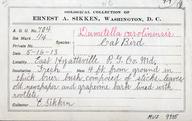 OOLOGICAL COLLECTION OF
ERNEST A. SIKKEN, WASHINGTON, D. C.
A. O. U. 704
Dumetella carolinensis
Set Mark 1/4
Cat Bird
Date 5-16-13
Locality East Hyattsville P. G. Co. Md.
Incubation Fresh
Nest 4 ft from ground in
thick brier bush composed of sticks, leaves,
old newspaper and grapevine bark lined with
rootlets
Collector E. Sikken